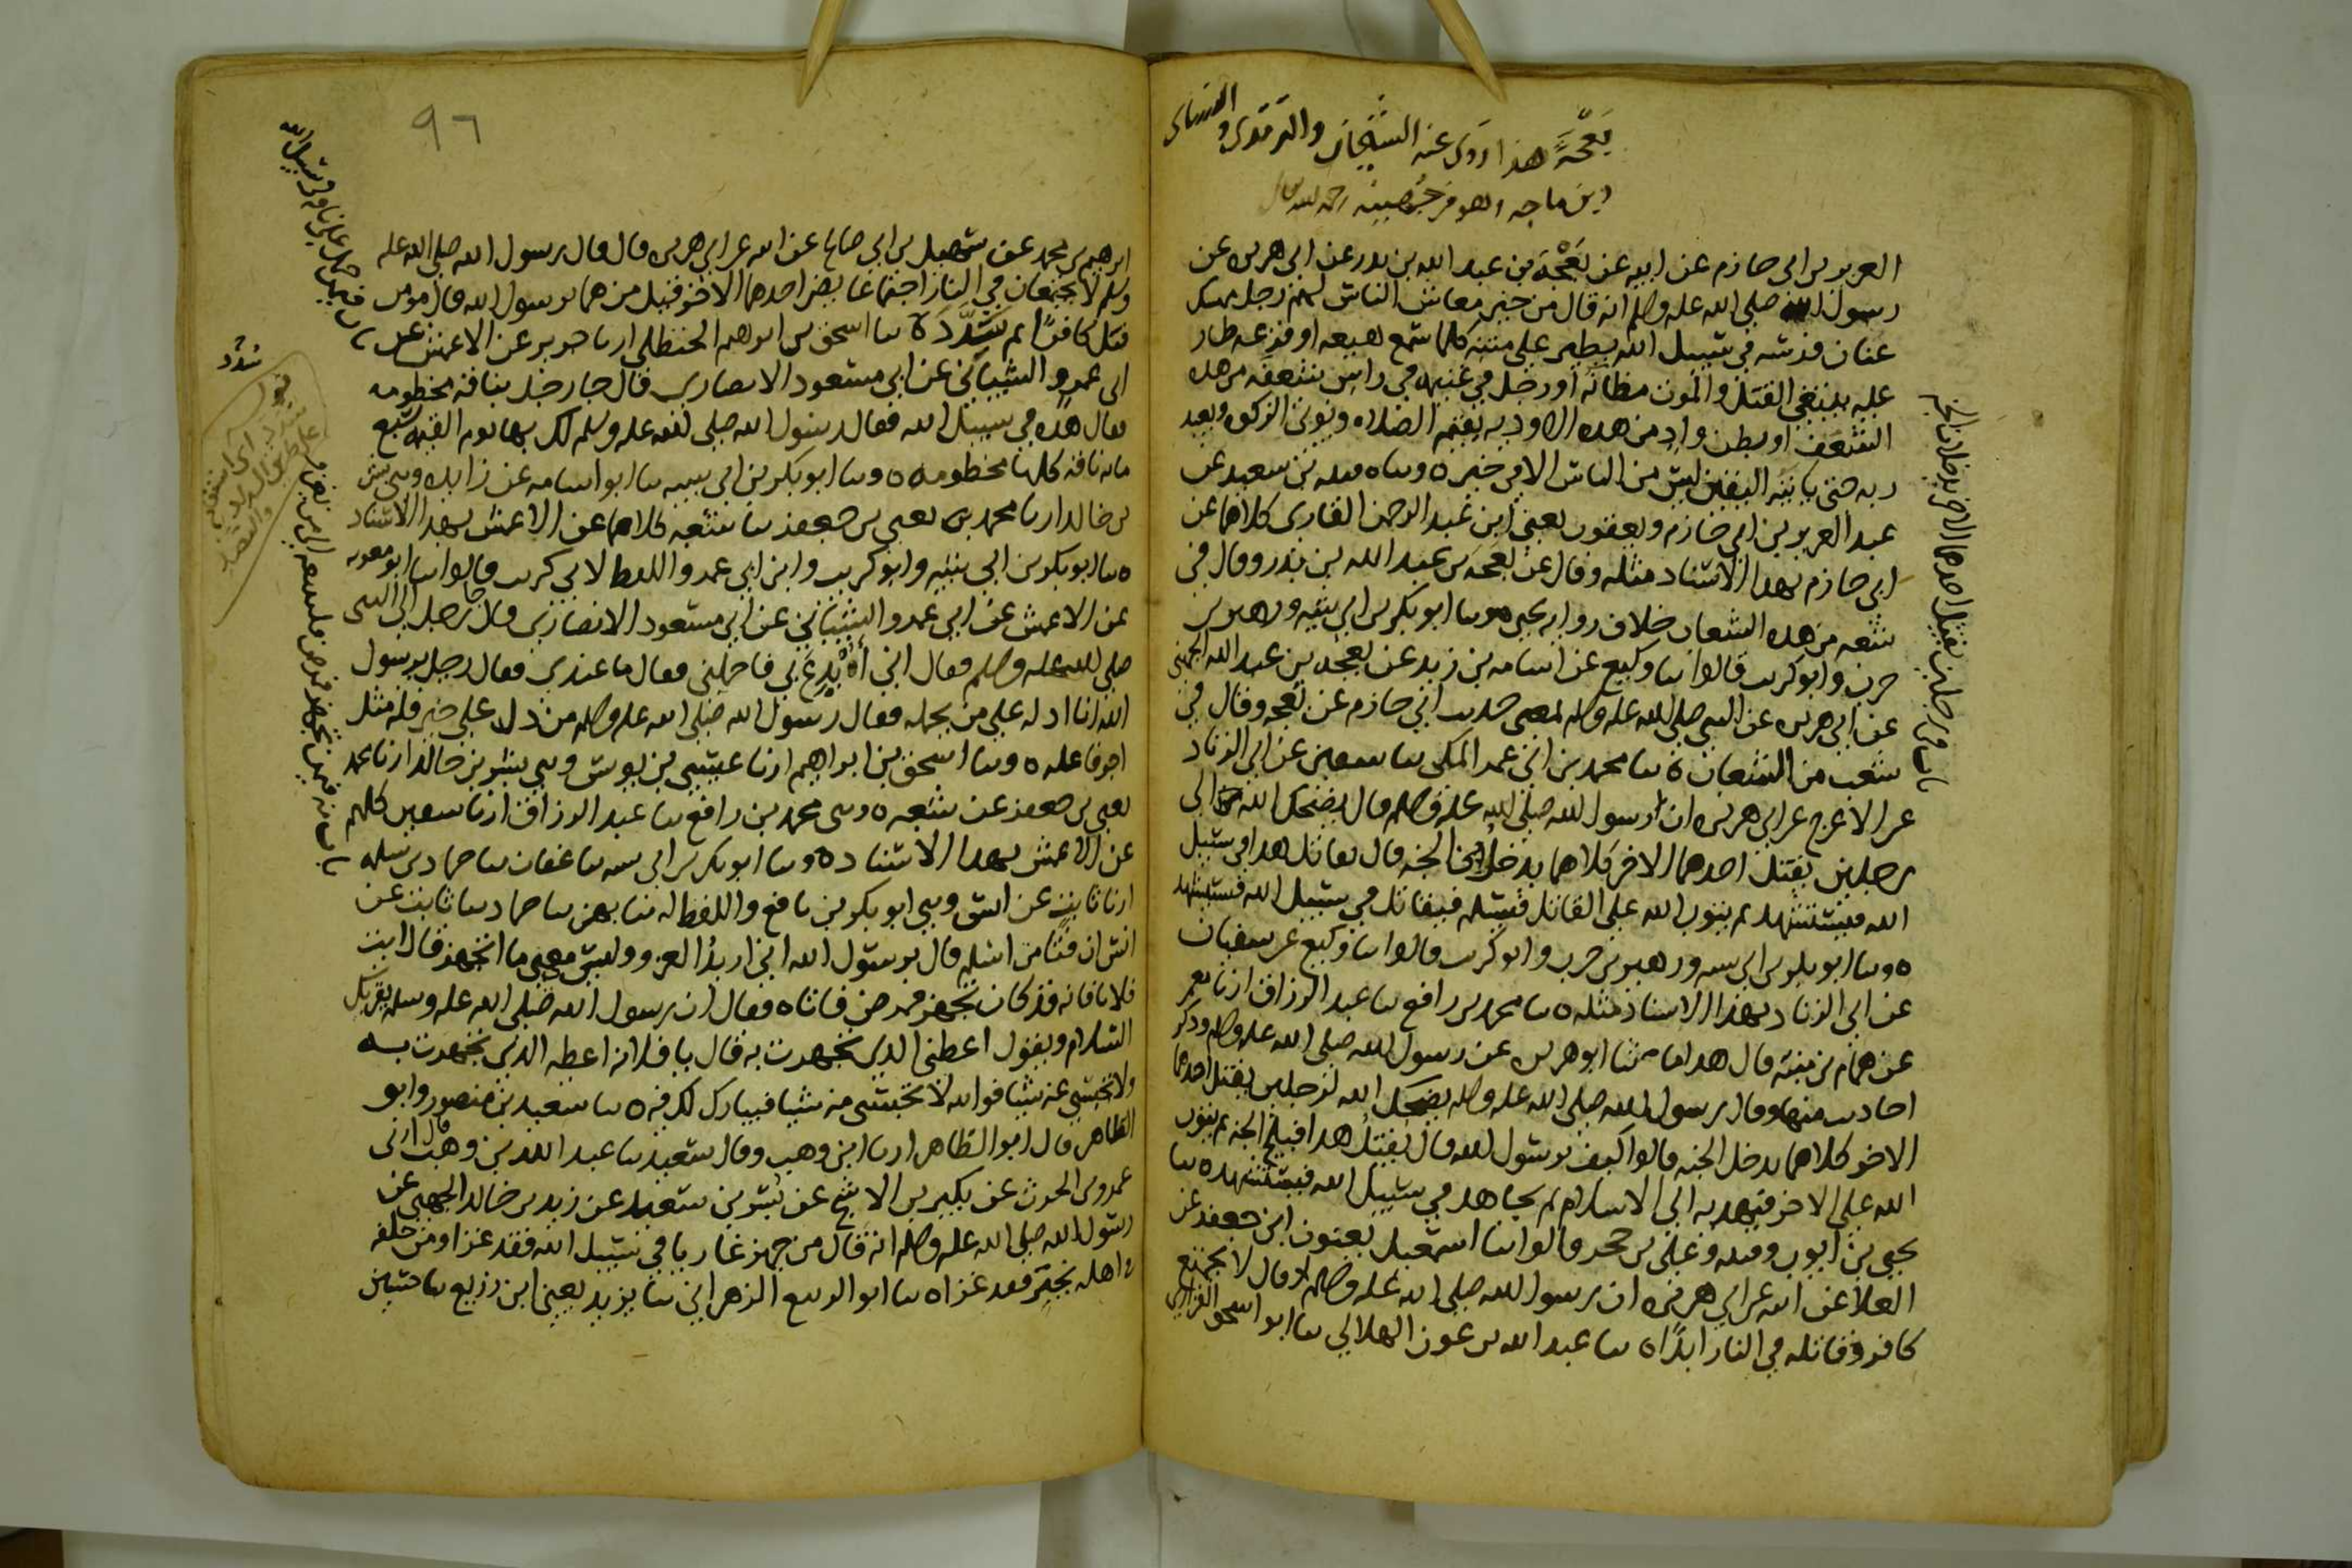 بَعْجَة هذا روى عنه الشيخان والترمذي والنسائي
وابن ماجه
العزيز بن ابي حازم عن ابيه عن بَعْجَة بن عبد الله بن بدر عن ابي هريره عن
رسول الله صلى الله عليه وسلم انه قال من خير معاش الناس لهم رجل ممسك
عنان فرسه في سبيل الله يطير على متنه كلما سمع هيعه او فزعه طار
عليه يبتغي القتل والموت مظانه او رجل في غنيمه في راس شعفه من هذه
الشعف او بطن واد من هذه الاوديه يقيم الصلاه ويوتي الزكوه ويعبد
ربه حتى ياتيه اليقين ليس من الناس الا في خير ٥ وساه قتيبه بن سعيد عن
عبد العزيز بن ابي حازم ويعقوب يعني ابن عبد الرحمن القاري كلاهما عن
ابي حازم بهذا الاسناد مثله وقال عن بعجه بن عبد الله بن بدر وقال في
شعبه من هذه الشعاب خلاف روايه يحيى ٥ وسا ابو بكر بن ابي شيبه وزهير بن
حرب وابو كريب قالوا سا وكيع عن اسامه بن زيد عن بعجه بن عبد الله الجهني
عن ابي هريره عن النبي صلى الله عليه وسلم بمعنى حديث ابي حازم عن بعجه وقال في
شعب من الشعاب ٥ سا محمد بن ابي عمر المكي سا سفين عن ابي الزناد
عن الاعرج عن ابي هريره ان رسول الله صلى الله عليه وسلم قال يضحك الله الى
رجلين يقتل احدهما الاخر كلاهما يدخل الجنه قال يقاتل هذا في سبيل
الله فيستشهد ثم يتوب الله على القاتل فيسلم فيقاتل في سبيل الله فيستشهد
٥ وسا ابو بكر بن ابي شيبه وزهير بن حرب وابو كريب قالوا سا وكيع عن سفيان
عن ابي الزناد بهذا الاسناد مثله ٥ سا محمد بن رافع سا عبد الرزاق ارنا معمر
عن همام بن منبه قال هذا ما حدثنا ابو هريره عن رسول الله صلى الله عليه وسلم وذكر
احاديث منها وقال رسول الله صلى الله عليه وسلم يضحك الله لرجلين يقتل احدهما
الاخر كلاهما يدخل الجنه قالوا كيف يرسول الله قال يُقتل هذا فيلج الجنه ثم يتوب
الله على الاخر فيهديه الى الاسلام ثم يجاهد في سبيل الله فيستشهد ٥ سا
يحيى بن ايوب وقتيبه وعلي بن حجر قالوا سا اسمعيل يعنون ابن جعفر عن
العلا عن ابيه عن ابي هريره ان رسول الله صلى الله عليه وسلم قال لا يجتمع
كافر وقاتله في النار ابدًا ٥ سا عبد الله بن عون الهلالي سا ابو اسحق الفزاري
٩٦
ابرهيم بن محمد عن سهيل بن ابي صالح عن ابيه عن ابي هريره قال قال رسول الله صلى الله عليه
وسلم لا يجتمعان في النار اجتماعا يضر احدهما الاخر قيل من هما يرسول الله قال مومن
قتل كافرًا ثم سَدَّدَ ٥ سا اسحق بن ابرهيم الحنظلي ارنا جرير عن الاعمش عن
ابي عمرو الشيباني عن ابي مسعود الانصاري قال جا رجل بناقه مخطومه
فقال هذه في سبيل الله فقال رسول الله صلى الله عليه وسلم لك بها يوم القيمه سبع
مايه ناقه كلها مخطومه ٥ وسا ابو بكر بن ابي شيبه سا ابو اسامه عن زايده وسي بشر
بن خالد ارنا محمد يعني بن جعفر سا شعبه كلاهما عن الاعمش بهذا الاسناد
٥ سا ابو بكر بن ابي شيبه وابو كريب وابن ابي عمر واللفظ لابي كريب قالوا سا ابو معويه
عن الاعمش عن ابي عمرو الشيباني عن ابي مسعود الانصاري قال جا رجل الى النبي
صلى الله عليه وسلم فقال اني أُبْدِعَ بي فاحملني فقال ما عندي فقال رجل يرسول
الله انا ادله على من يحمله فقال رسول الله صلى الله عليه وسلم من دل على خير فله مثل
اجر فاعله ٥ وسا اسحق بن ابراهيم ارنا عيسى بن يونس وسي بشر بن خالد ارنا محمد
يعني بن جعفر عن شعبه ٥ وسي محمد بن رافع سا عبد الرزاق ارنا سفين كلهم
عن الاعمش بهذا الاسناد ٥ وسا ابو بكر بن ابي شيبه سا عفان سا حماد بن سلمه
ارنا ثابت عن انس وسي ابو بكر بن نافع واللفظ له سا بهز سا حماد سا ثابت عن
انس ان فتًا من اسلم قال يرسول الله اني اريد الغزو وليس معي ما اتجهز قال ايت
فلانا فانه قد كان تجهز فمرض فاتاه فقال ان رسول الله صلى الله عليه وسلم يقريك
السلام ويقول اعطني الذي تجهزت به قال يا فلانه اعطه الذي تجهزت به
ولا تحبسي عنه شيا فوالله لا تحبسي منه شيا فيبارك لك فيه ٥ سا سعيد بن منصور وابو
الطاهر قال ابو الطاهر ارنا ابن وهب وقال سعيد سا عبد الله بن وهب قال ارني
عمرو بن الحرث عن بكير بن الاشج عن بُسر بن سعيد عن زيد بن خالد الجهني عن
رسول الله صلى الله عليه وسلم انه قال من جهز غازيا في سبيل الله فقد غزا ومن خلفه
في اهله بخير فقد غزا ٥ سا ابو الربيع الزهراني سا يزيد يعني ابن زريع سا حسين